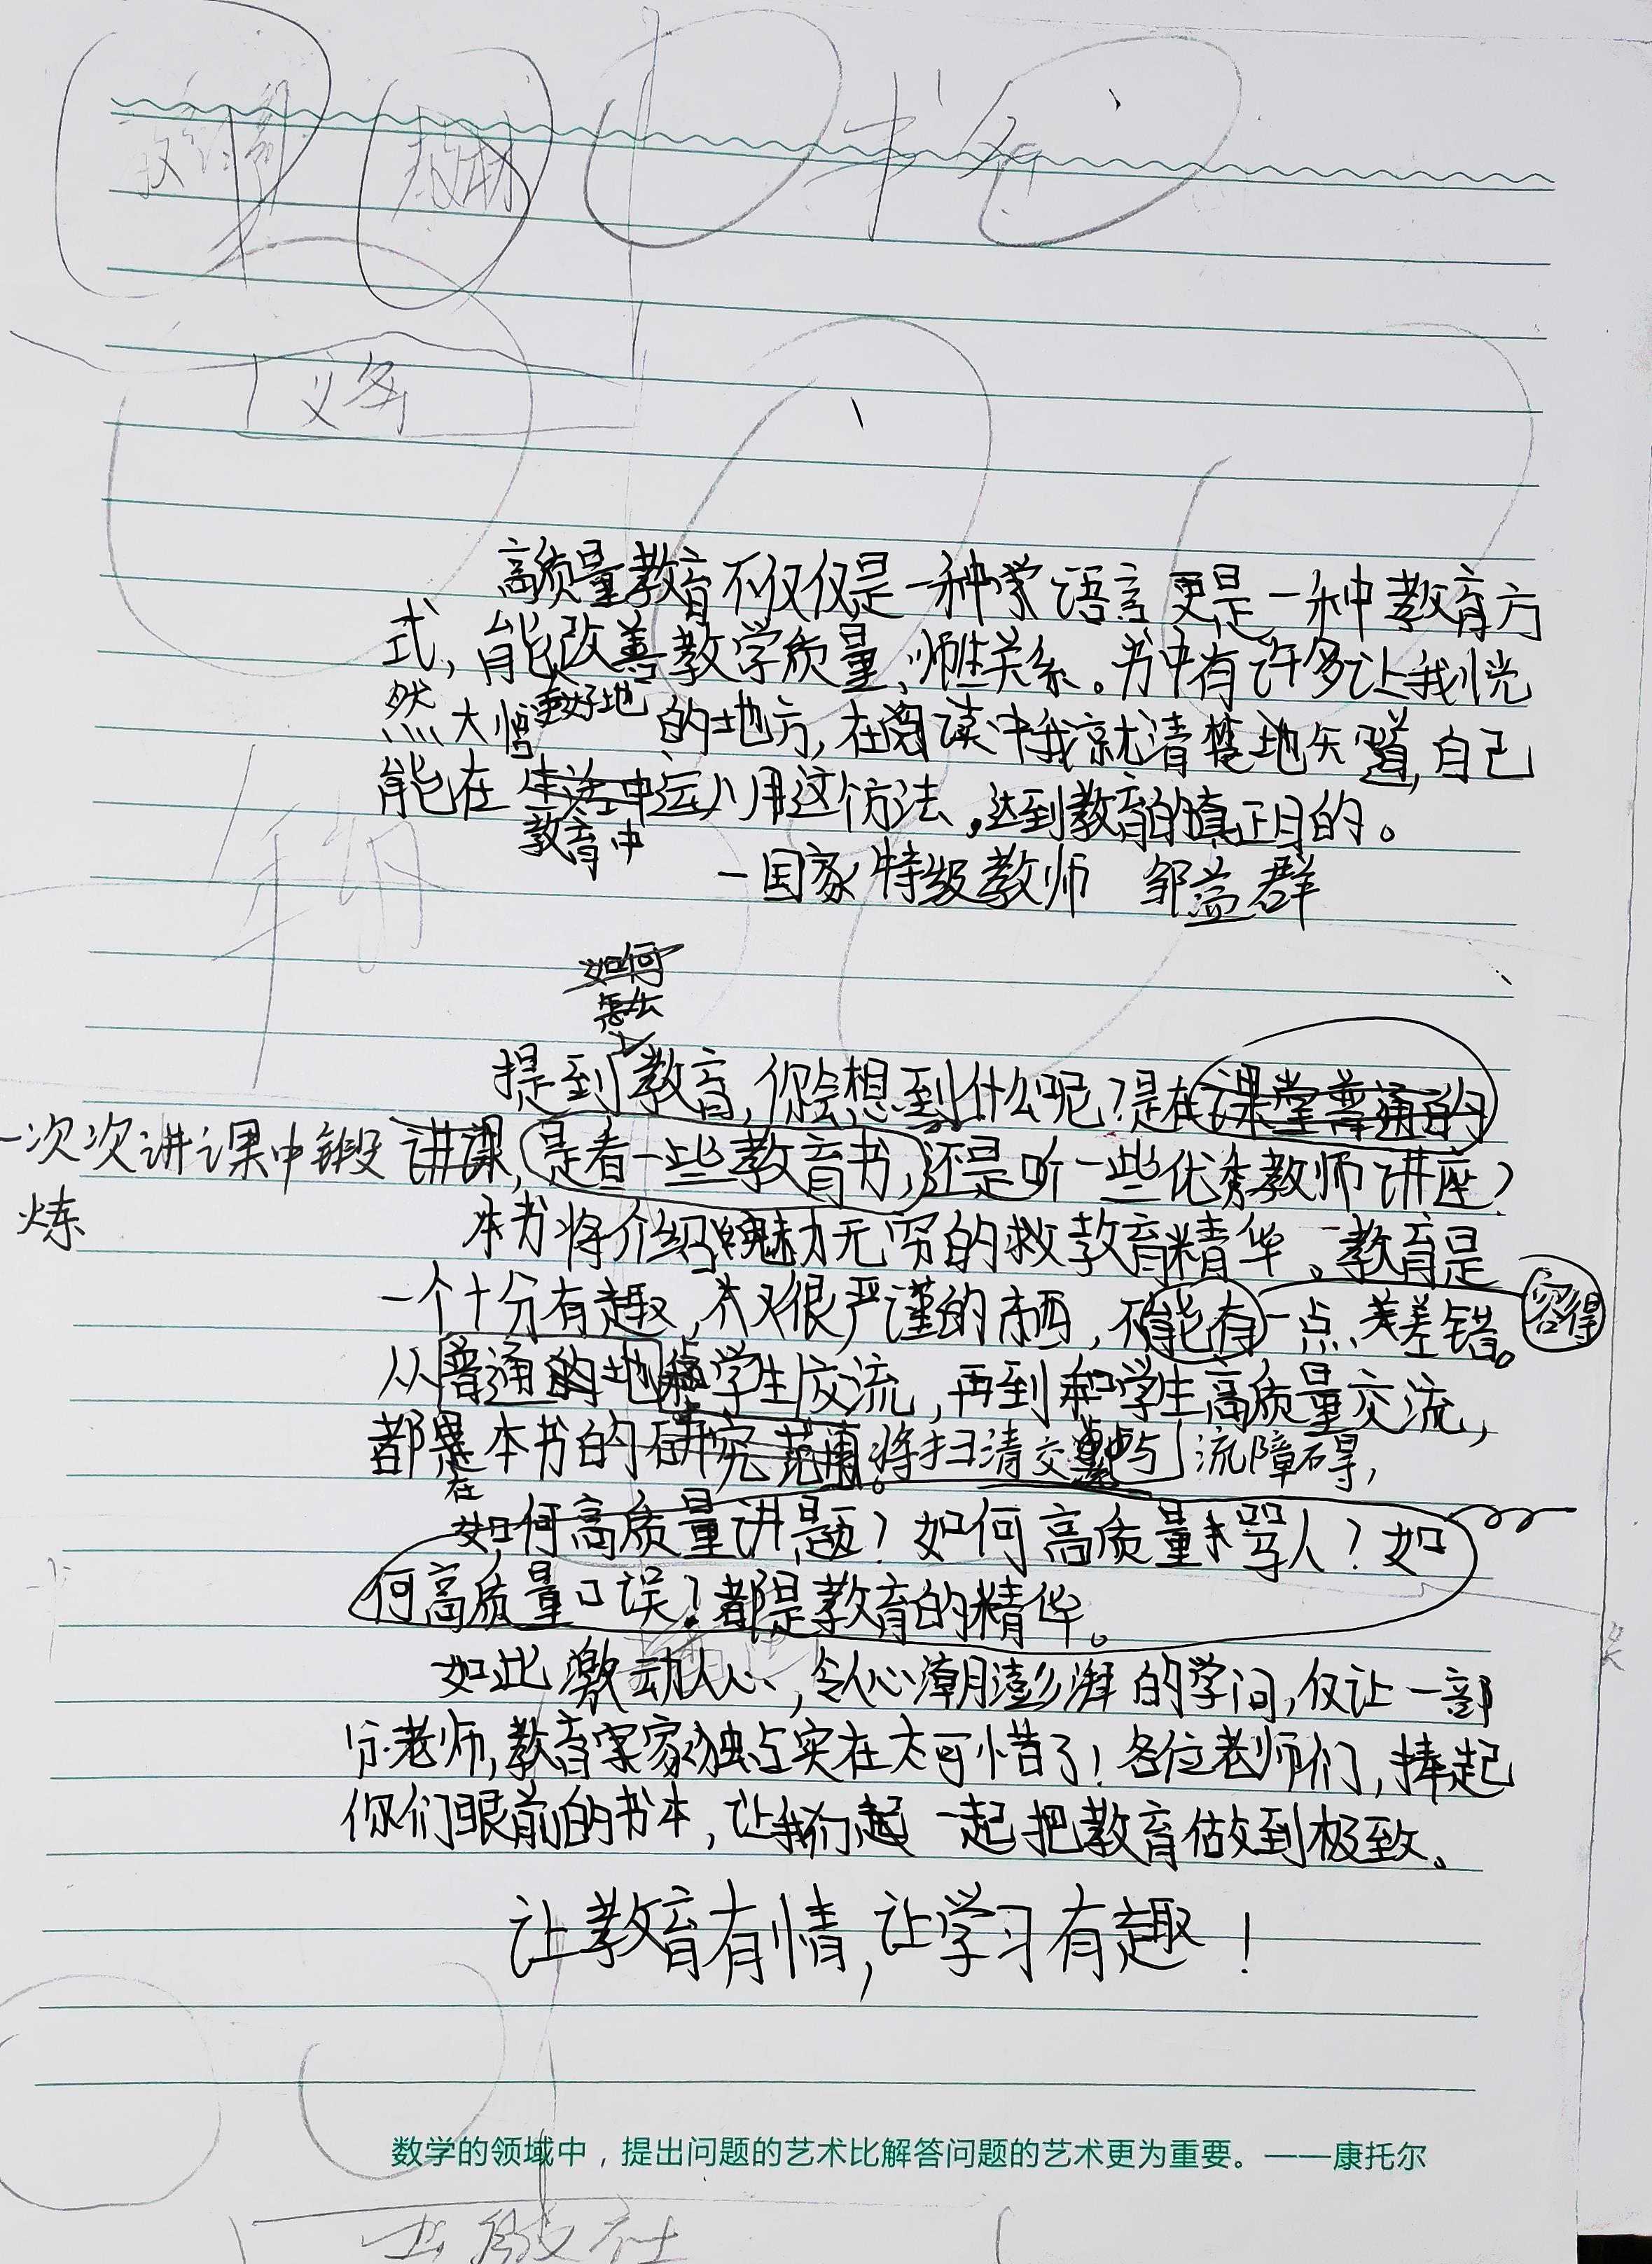 书名
义务
高质量教育不仅仅是一种学语言更是一种教育方
式,能改善教学质量、师生关系。书中有许多让我恍
然大悟 的地方,在阅读中我就清楚地知道,自己
更好地
能在生活中运用这个方法,达到教育的真正目的。
教育中
一国家特级教师 邹益群
如何
怎么
提到教育,你会想到什么呢?是在课堂普通的
一次次讲课中锻 讲课,是看一些教育书,还是听一些优秀教师讲座?
炼
本书将介绍魅力无穷的教育精华。教育是
一个十分有趣,又很严谨的东西,不能有一点差错。
容得
从普通的地和学生交流,再到和学生高质量交流,
都是本书的研究范围。将扫清交 与流障碍,
在
如何高质量讲题?如何高质量骂人?如
何高质量口误?都是教育的精华。
如此激动人心,令人心潮澎湃的学问,仅让一部
分老师,教育家独占实在太可惜了!各位老师们,捧起
你们眼前的书本,让我们一起把教育做到极致。
让教育有情,让学习有趣!
数学的领域中,提出问题的艺术比解答问题的艺术更为重要。——康托尔
出版社